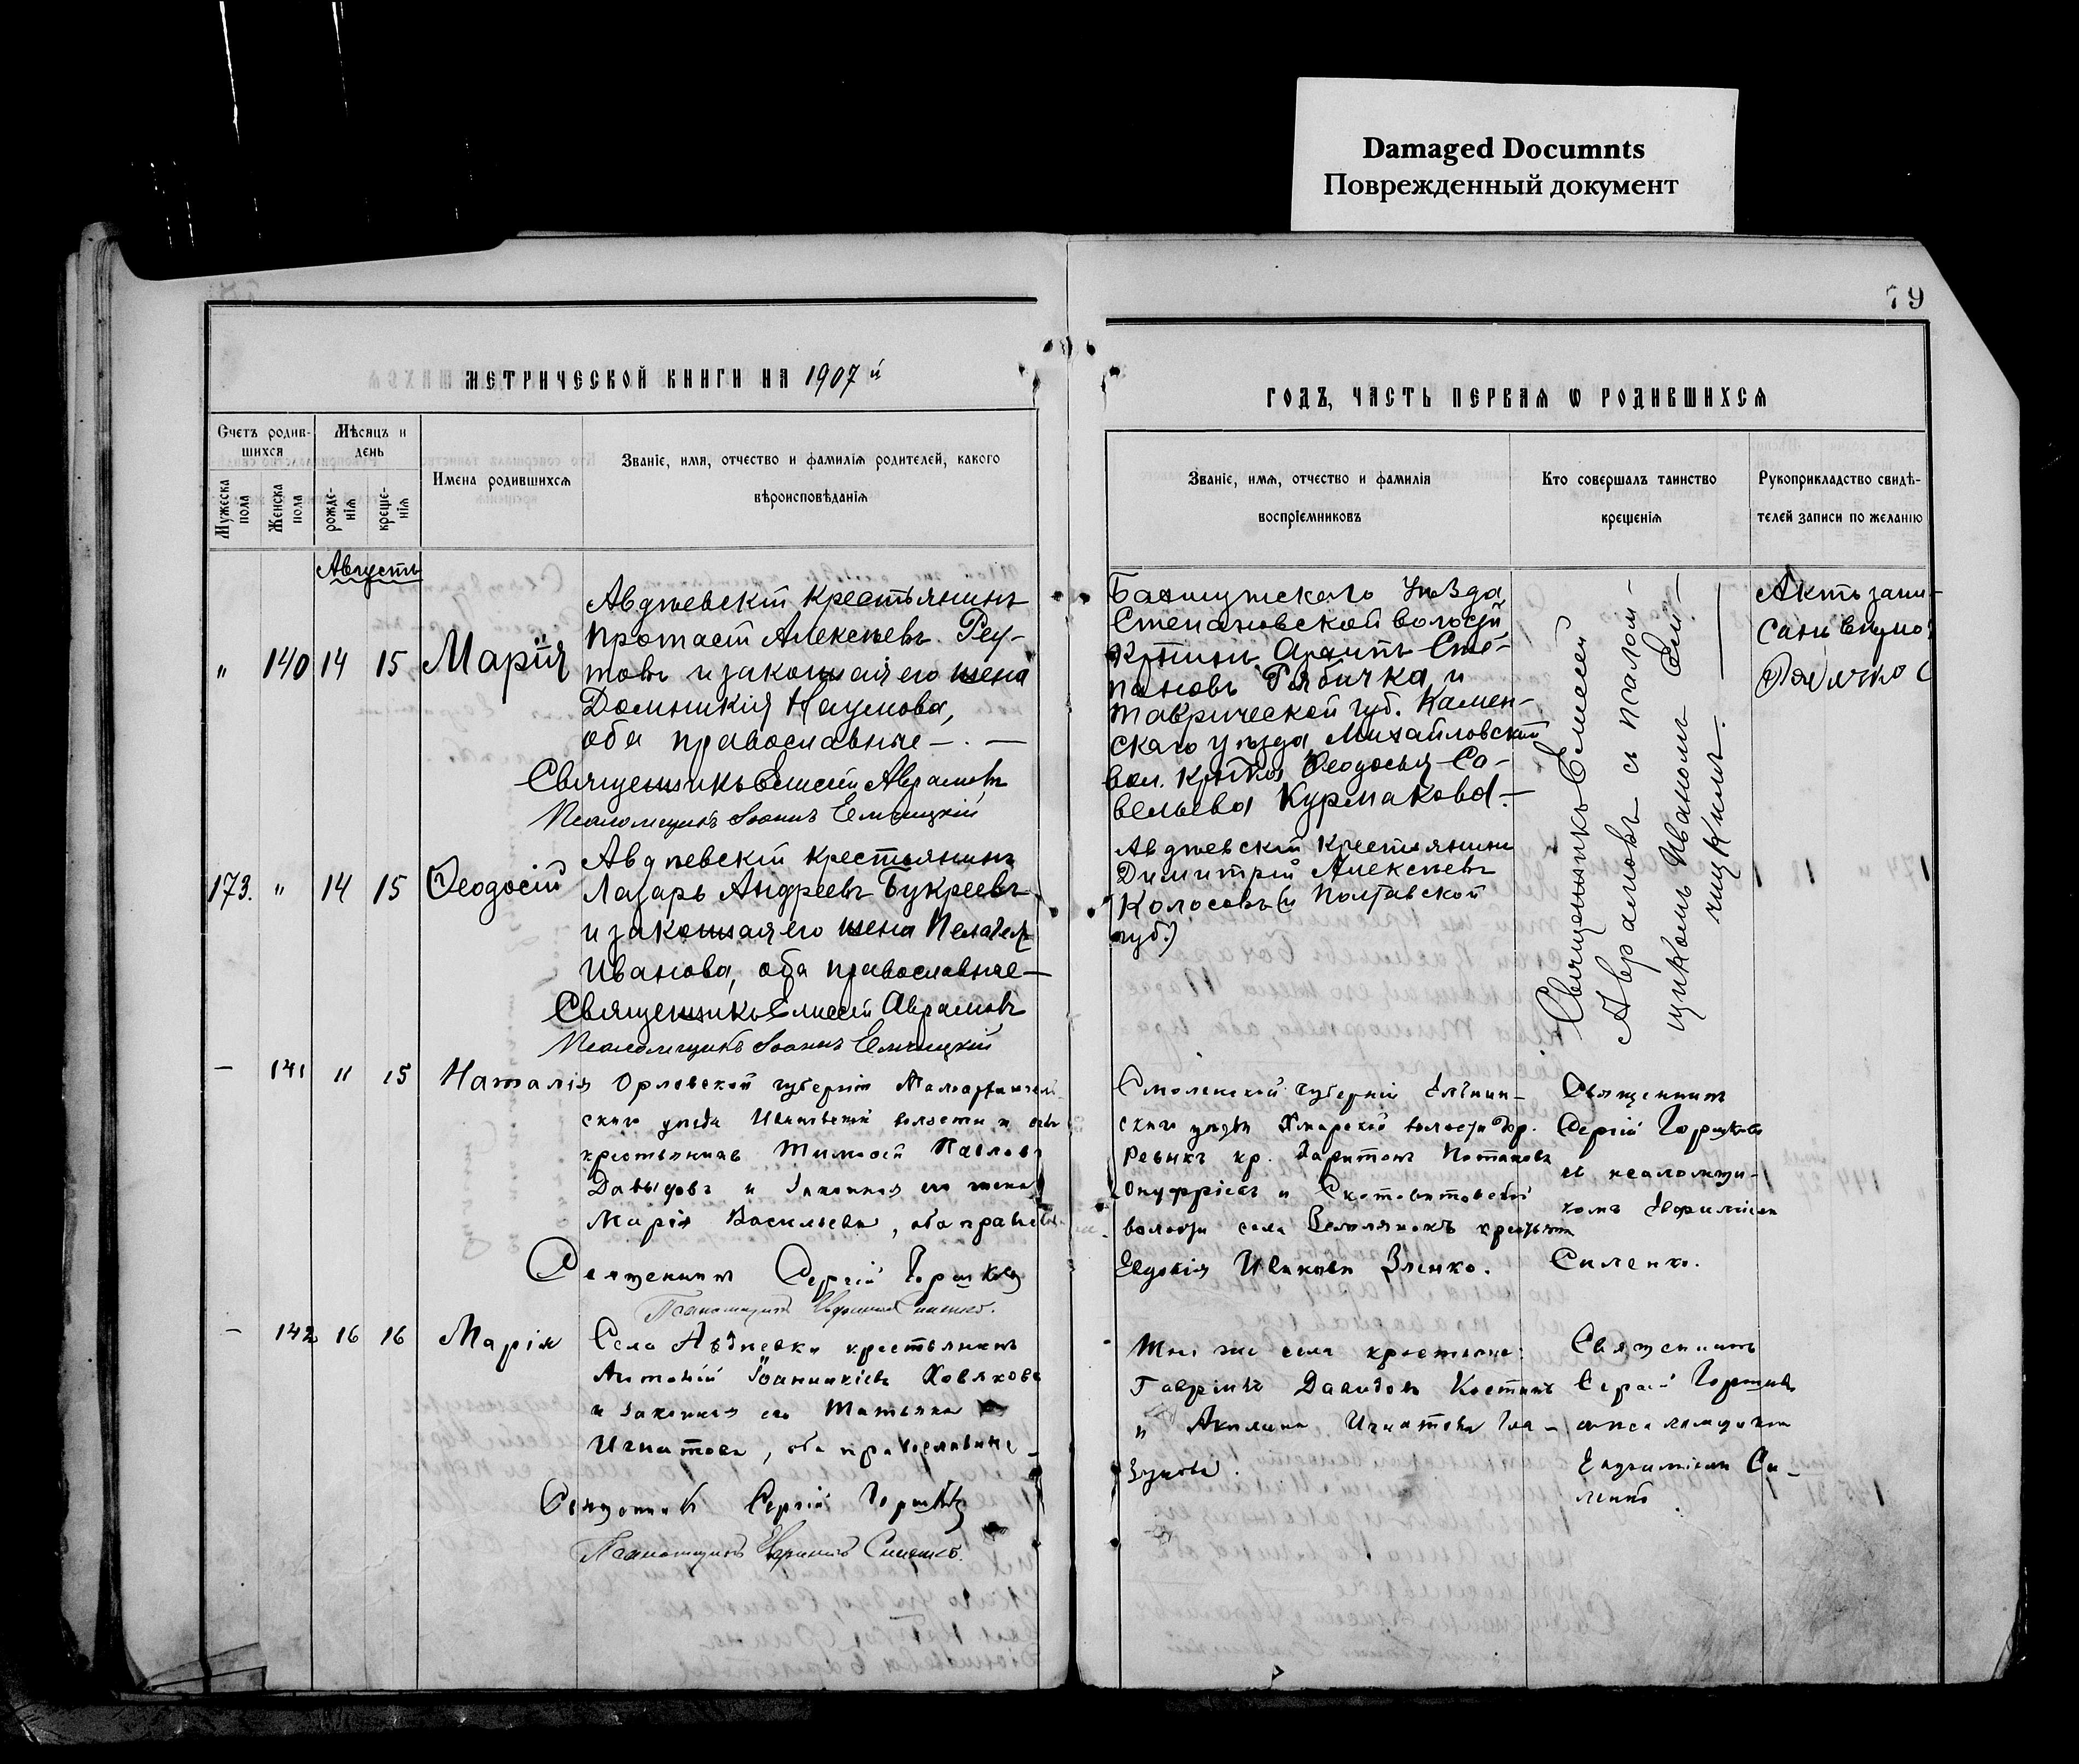 Damaged Documnts
Поврежденный документ
79
МЕТРИЧЕСКОЙ КНИГИ НА 1907 й
ГОДЪ, ЧАСТЬ ПЕРВАЯ Ѡ РОДИВШИХСЯ
Счетъ родив-
шихся
Мѣсяцъ и
день
Мужеска
пола
Женска
пола
рожде-
нія
креще-
нія
Имена родившихся
Званіе, имя, отчество и фамилія родителей, какого
вѣроисповѣданія
Званіе, имя, отчество и фамилія
воспріемниковъ
Кто совершалъ таинство
крещенія
Рукоприкладство свидѣ-
телей записи по желанію
Августъ
" 140 14 15 Марія
Авдѣевскій крестьянинъ
Протасій Алексѣевъ Реу-
товъ и законная его жена
Домникія Наумова,
оба православные
Священникъ Елисей Аврамовъ
Псаломщикъ Іоаннъ
Бахмутскаго уѣзда,
Степановской волости
кр-нинъ Архипъ Сте-
пановъ Рябичка и
Таврической губ. Камен-
скаго уѣзда Михайловской
вол. кр-тка Ѳеодосья Са-
вельева Курмакова.
Священникъ Елисей
Аврамовъ съ псалом-
щикомъ Иваномъ Ем-
чицкимъ.
Актъ запи-
санъ
173. " 14 15 Ѳеодосій
Авдѣевскій крестьянинъ
Лазарь Андреевъ Букреевъ
и законная его жена Пелагея
Иванова, оба православные
Священникъ Елисей Аврамовъ
Псаломщикъ Іоаннъ
Авдѣевскій крестьянинъ
Димитрій Алексѣевъ
Колосовъ (и Полтавской
губ.)
- 141 11 15 Наталія
Орловской губерніи
скаго уѣзда волости и
крестьянинъ Тимофей Павловъ
Давыдовъ и законная его жена
Марія Васильева, оба правосл.
Священникъ Сергій Горшковъ
Псаломщикъ Евфимій Силенко.
Смоленской губерніи Ельнин-
скаго уѣзда волости дер.
кр. Харитонъ Потаповъ
Онуфріевъ и
волости села крестьян.
Евдокія Иванова Зленко.
Священникъ
Сергій Горшковъ
съ псаломщи-
комъ Евфиміемъ
Силенко.
- 142 16 16 Марія
Села Авдѣевки крестьянинъ
Антоній Іоанникіевъ Ховяковъ
и законная его Татьяна
Игнатова, оба православные
Священникъ Сергій Горшковъ
Псаломщикъ Евфимій Силенко.
Того же села крестьяне:
Гавріилъ Давидовъ Костинъ
" Акилина Игнатова Гла-
зунова.
Священникъ
Сергій Горшковъ
съ псаломщикомъ
Евфиміемъ Си-
ленко